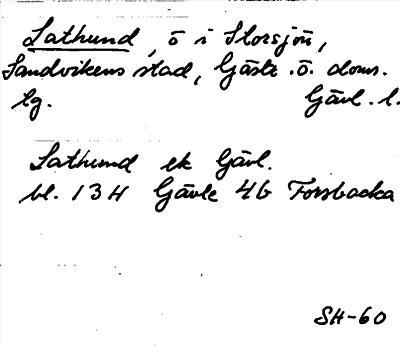 Lathund, ö i Storsjön,
Sandvikens stad, Gästr. ö. doms.
lg. Gävl. l.
Lathund ek Gävl.
bl. 13H Gävle 4G Forsbacka
SH-60